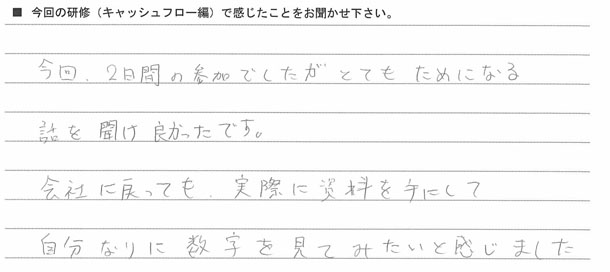 ■ 今回の研修（キャッシュフロー編）で感じたことをお聞かせ下さい。
今回、2日間の参加でしたがとてもためになる
話を聞け良かったです。
会社に戻っても、実際に資料を手にして
自分なりに数字を見てみたいと感じました